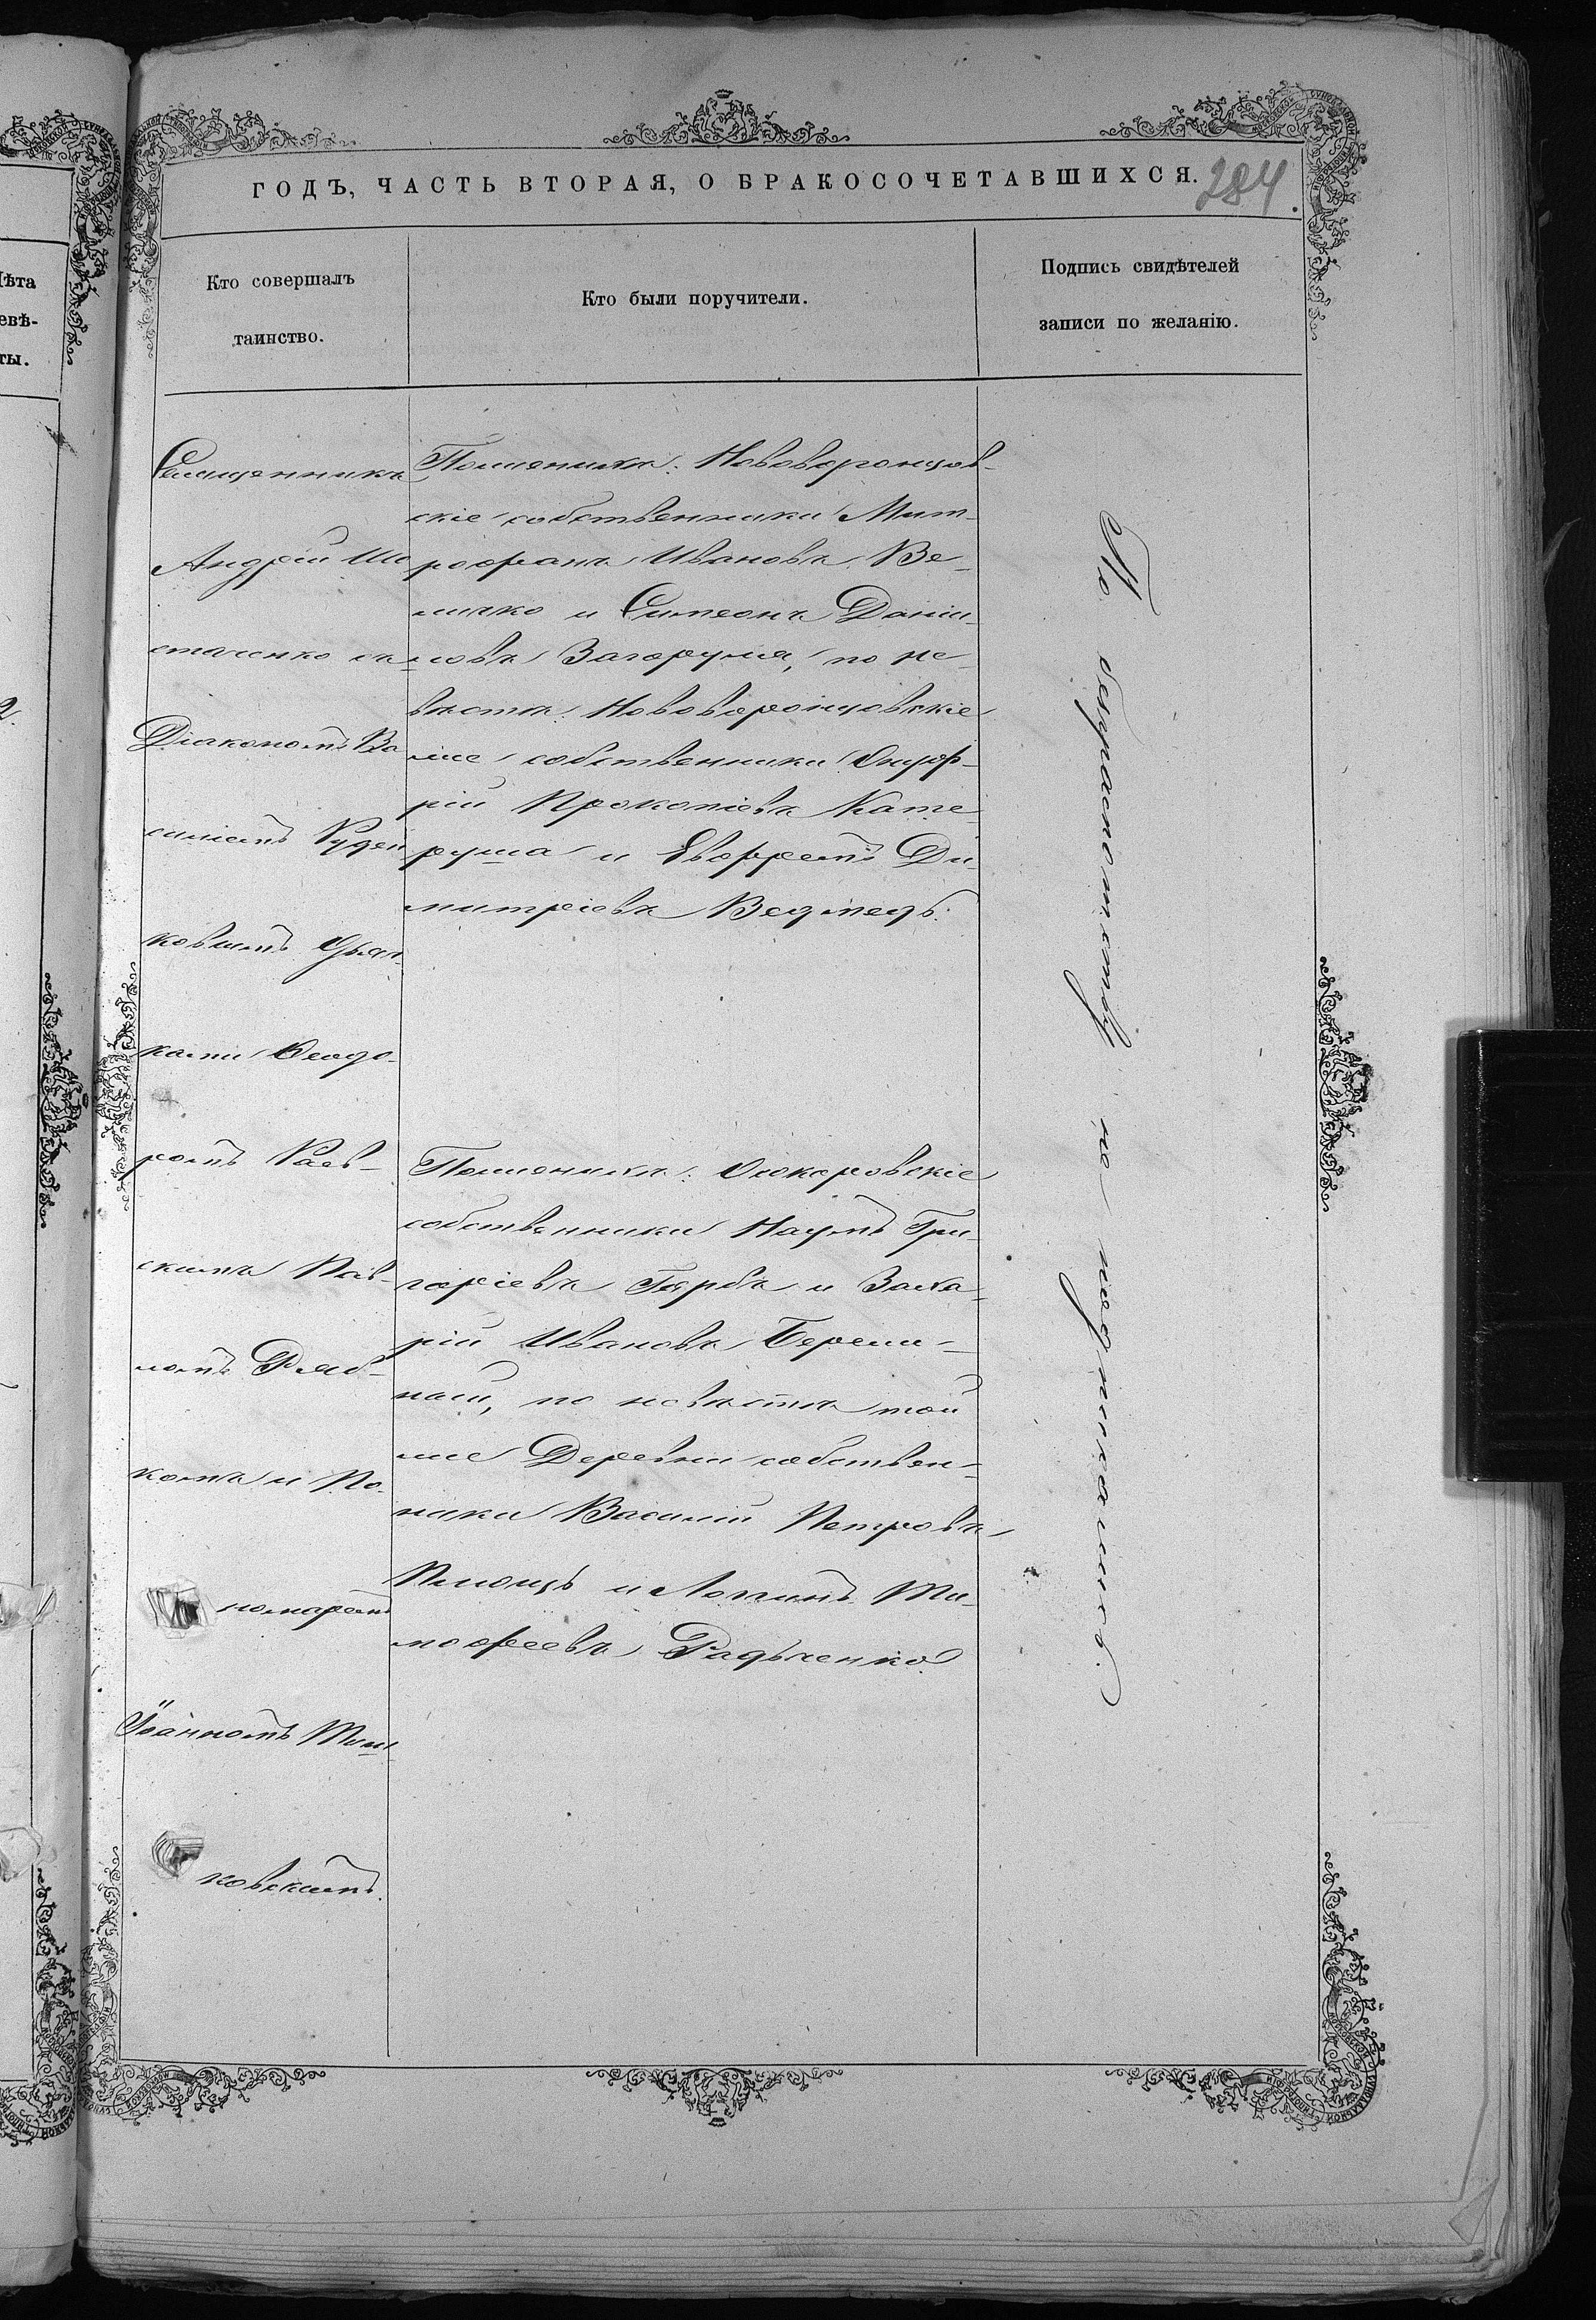 ГОДЪ, ЧАСТЬ ВТОРАЯ, О БРАКОСОЧЕТАВШИХСЯ.
284
Кто совершалъ
таинство.
Кто были поручители.
Подпись свидѣтелей
записи по желанію.
Священникъ
Андрей Ше
стаченко съ
Діакономъ Ва
силіемъ Руден
ковымъ Дьяч
ками Ѳеодо-
ромъ Раев-
скимъ Пав-
ломъ Ряб-
комъ и По-
номаремъ
Іоанномъ Тыш
ковскимъ.
По женихѣ: Нововоронцов-
скіе собственники Мит-
рофанъ Ивановъ Ве-
личко и Симеонъ Даніи-
ловъ Загоруля, по не-
вѣстѣ: Нововоронцовскіе
же собственники Онуф-
рій Прокопіевъ Кате-
руша и Евфремъ Ди-
митріевъ Ведмедь.
По женихѣ:
собственники Наумъ Гри-
горіевъ Горбъ и Заха-
рій Ивановъ
по невѣстѣ той
же Деревни собствен-
ники Василій Петровъ
и Логинъ Ти-
мофеевъ Радченко
По безграмотству не подписались.
лѣта
евѣ-
ты.